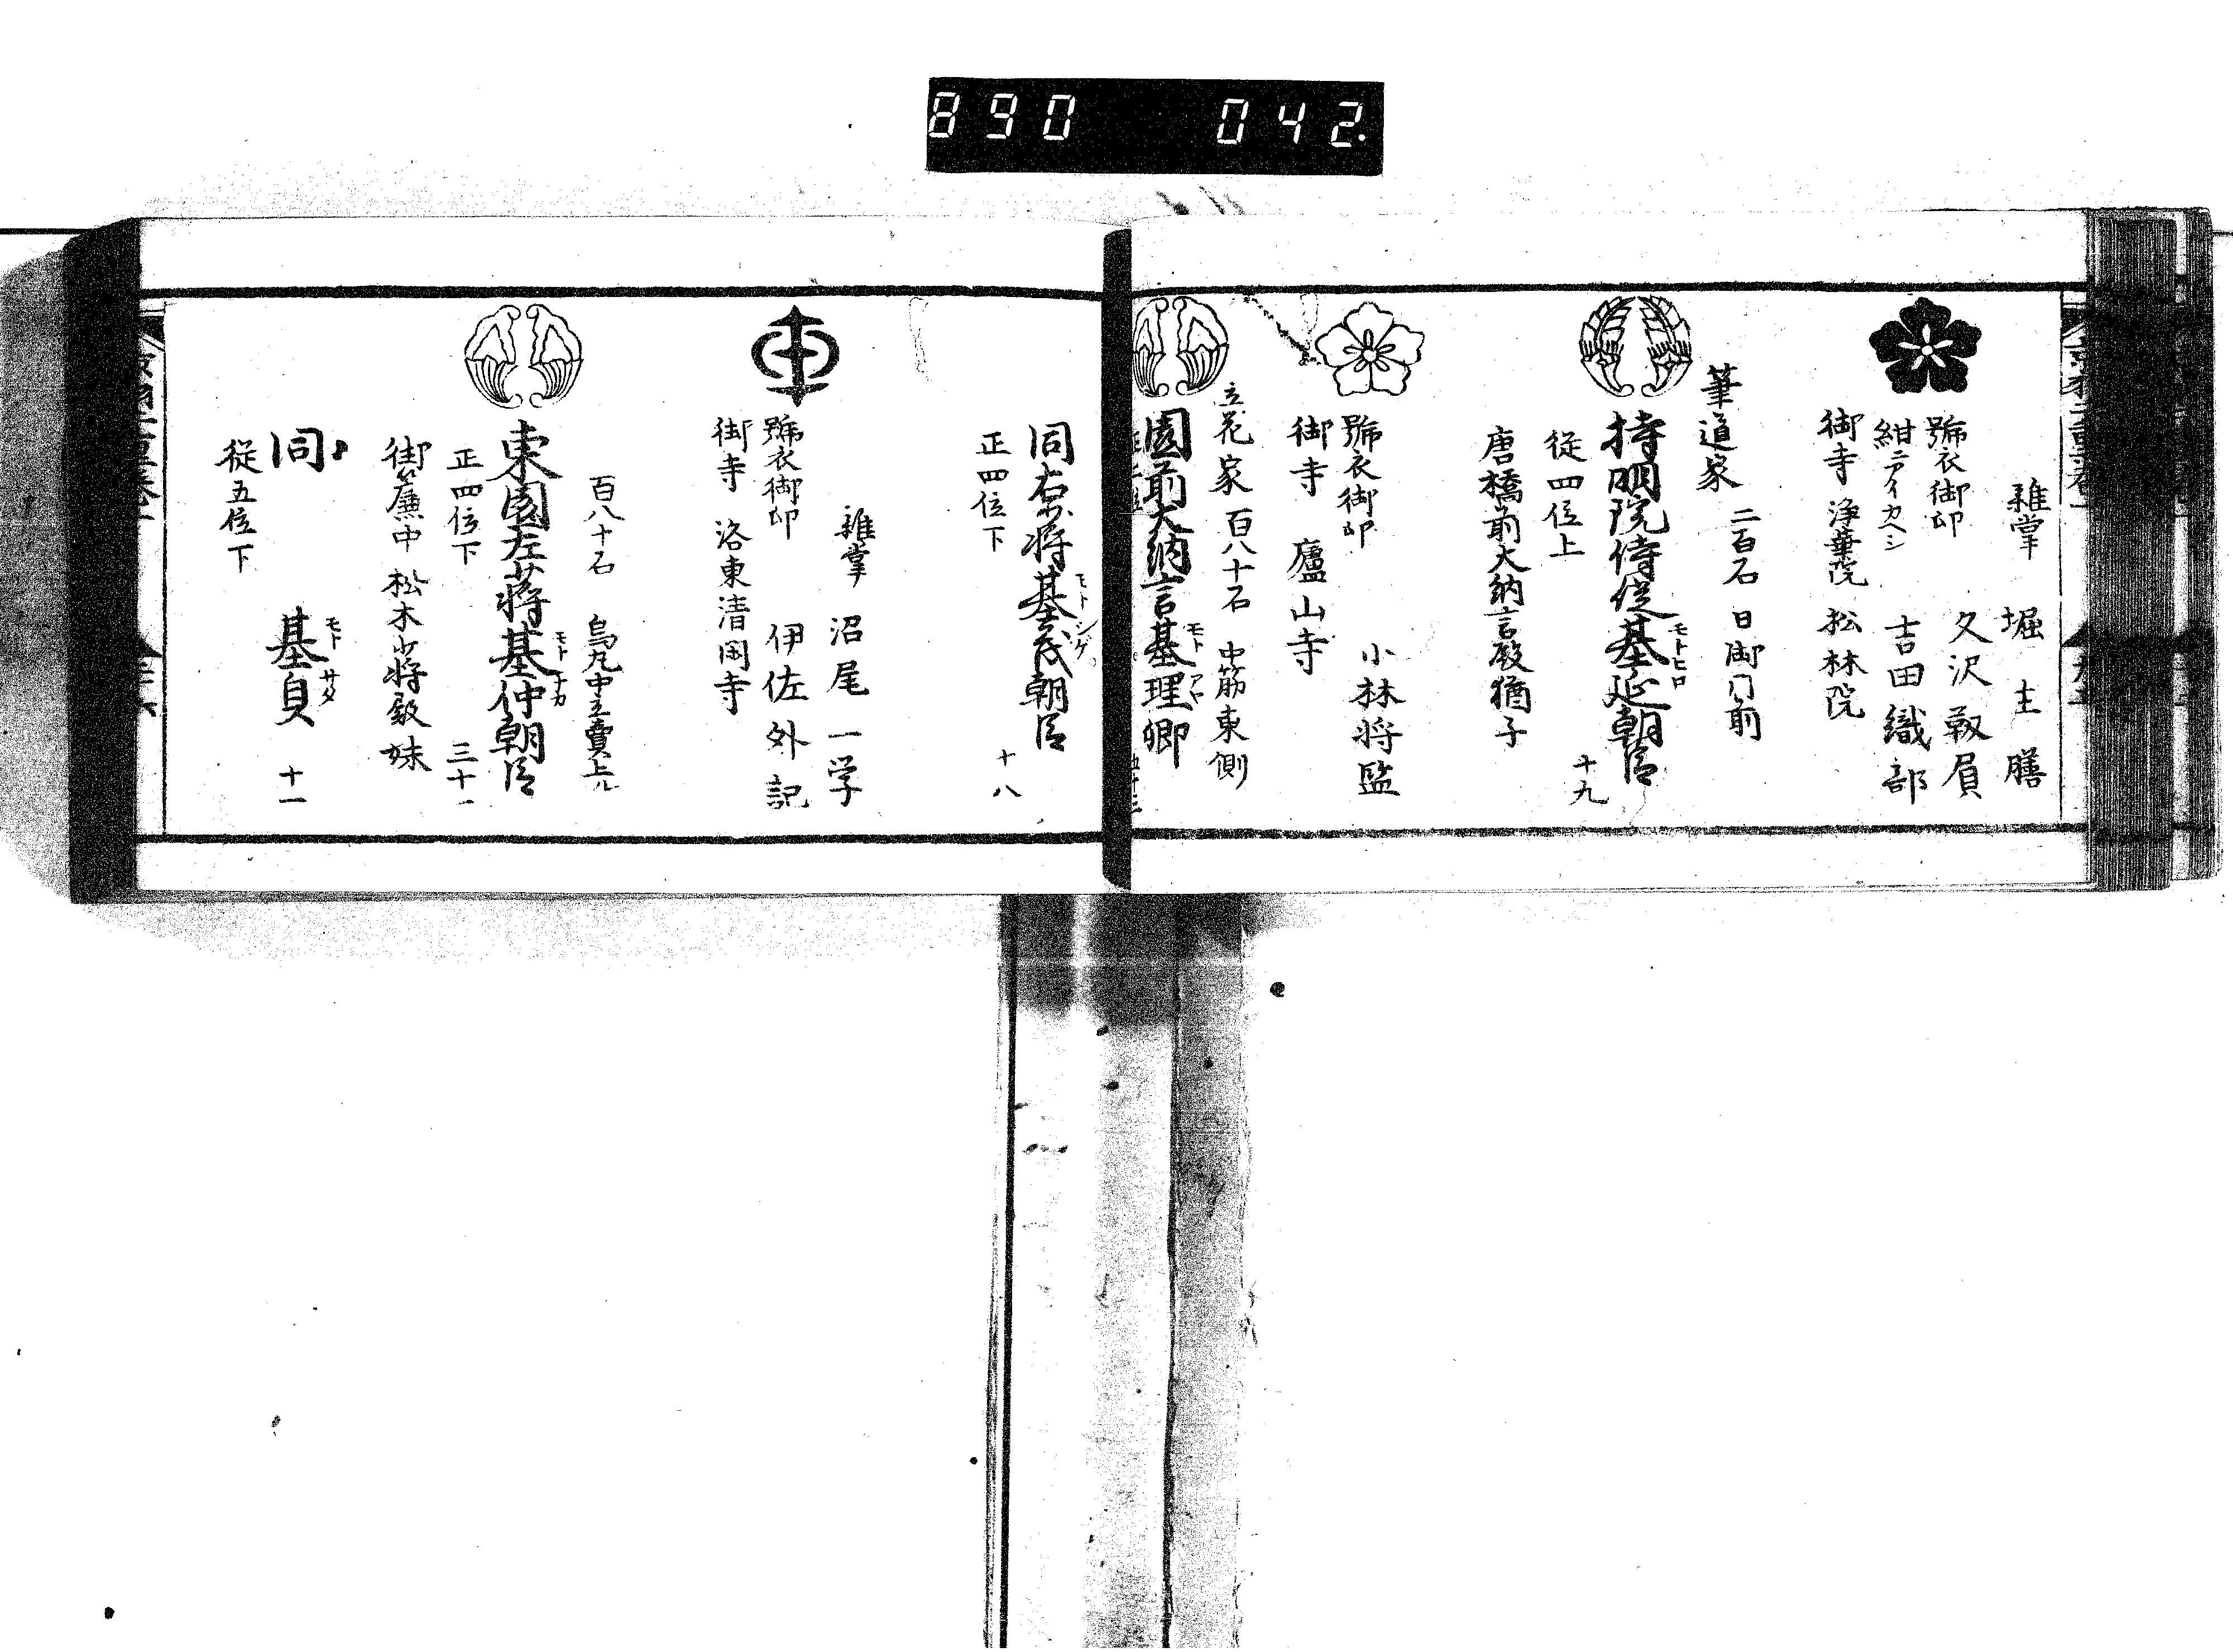 890 042
雑掌 堀主膳
久沢靱負
號衣御印
紺ニアイカヘシ 吉田織部
御寺 浄華院 松林院
筆道家 二百石 日御門前
持明院侍従基延朝臣 モトヒロ 十九
従四位上
唐橋前大納言殿猶子
小林将監
號衣御印
御寺 廬山寺
立花家 百八十石 中筋東側
園前大納言基理卿 モトアヤ
同右将基茂朝臣 モトシゲ
正四位下 十八
雑掌 沼尾一学
伊佐外記
號衣御印
御寺 洛東清閑寺
百八十石 烏丸中立賣上ル
東園左少将基仲朝臣 モトナカ
正四位下 三十一
御簾中 松木少将殿妹
同 基貞 モトサダ 十一
従五位下